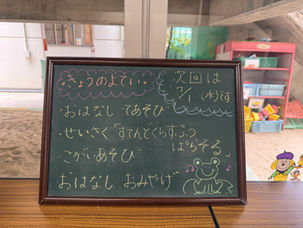 きょうのよてい・・
次回は
7/1(水)です
・おはなし てあそび
・せいさく「すてんどぐらすふう
ぱらそる」
・こがいあそび
おはなし おみやげ